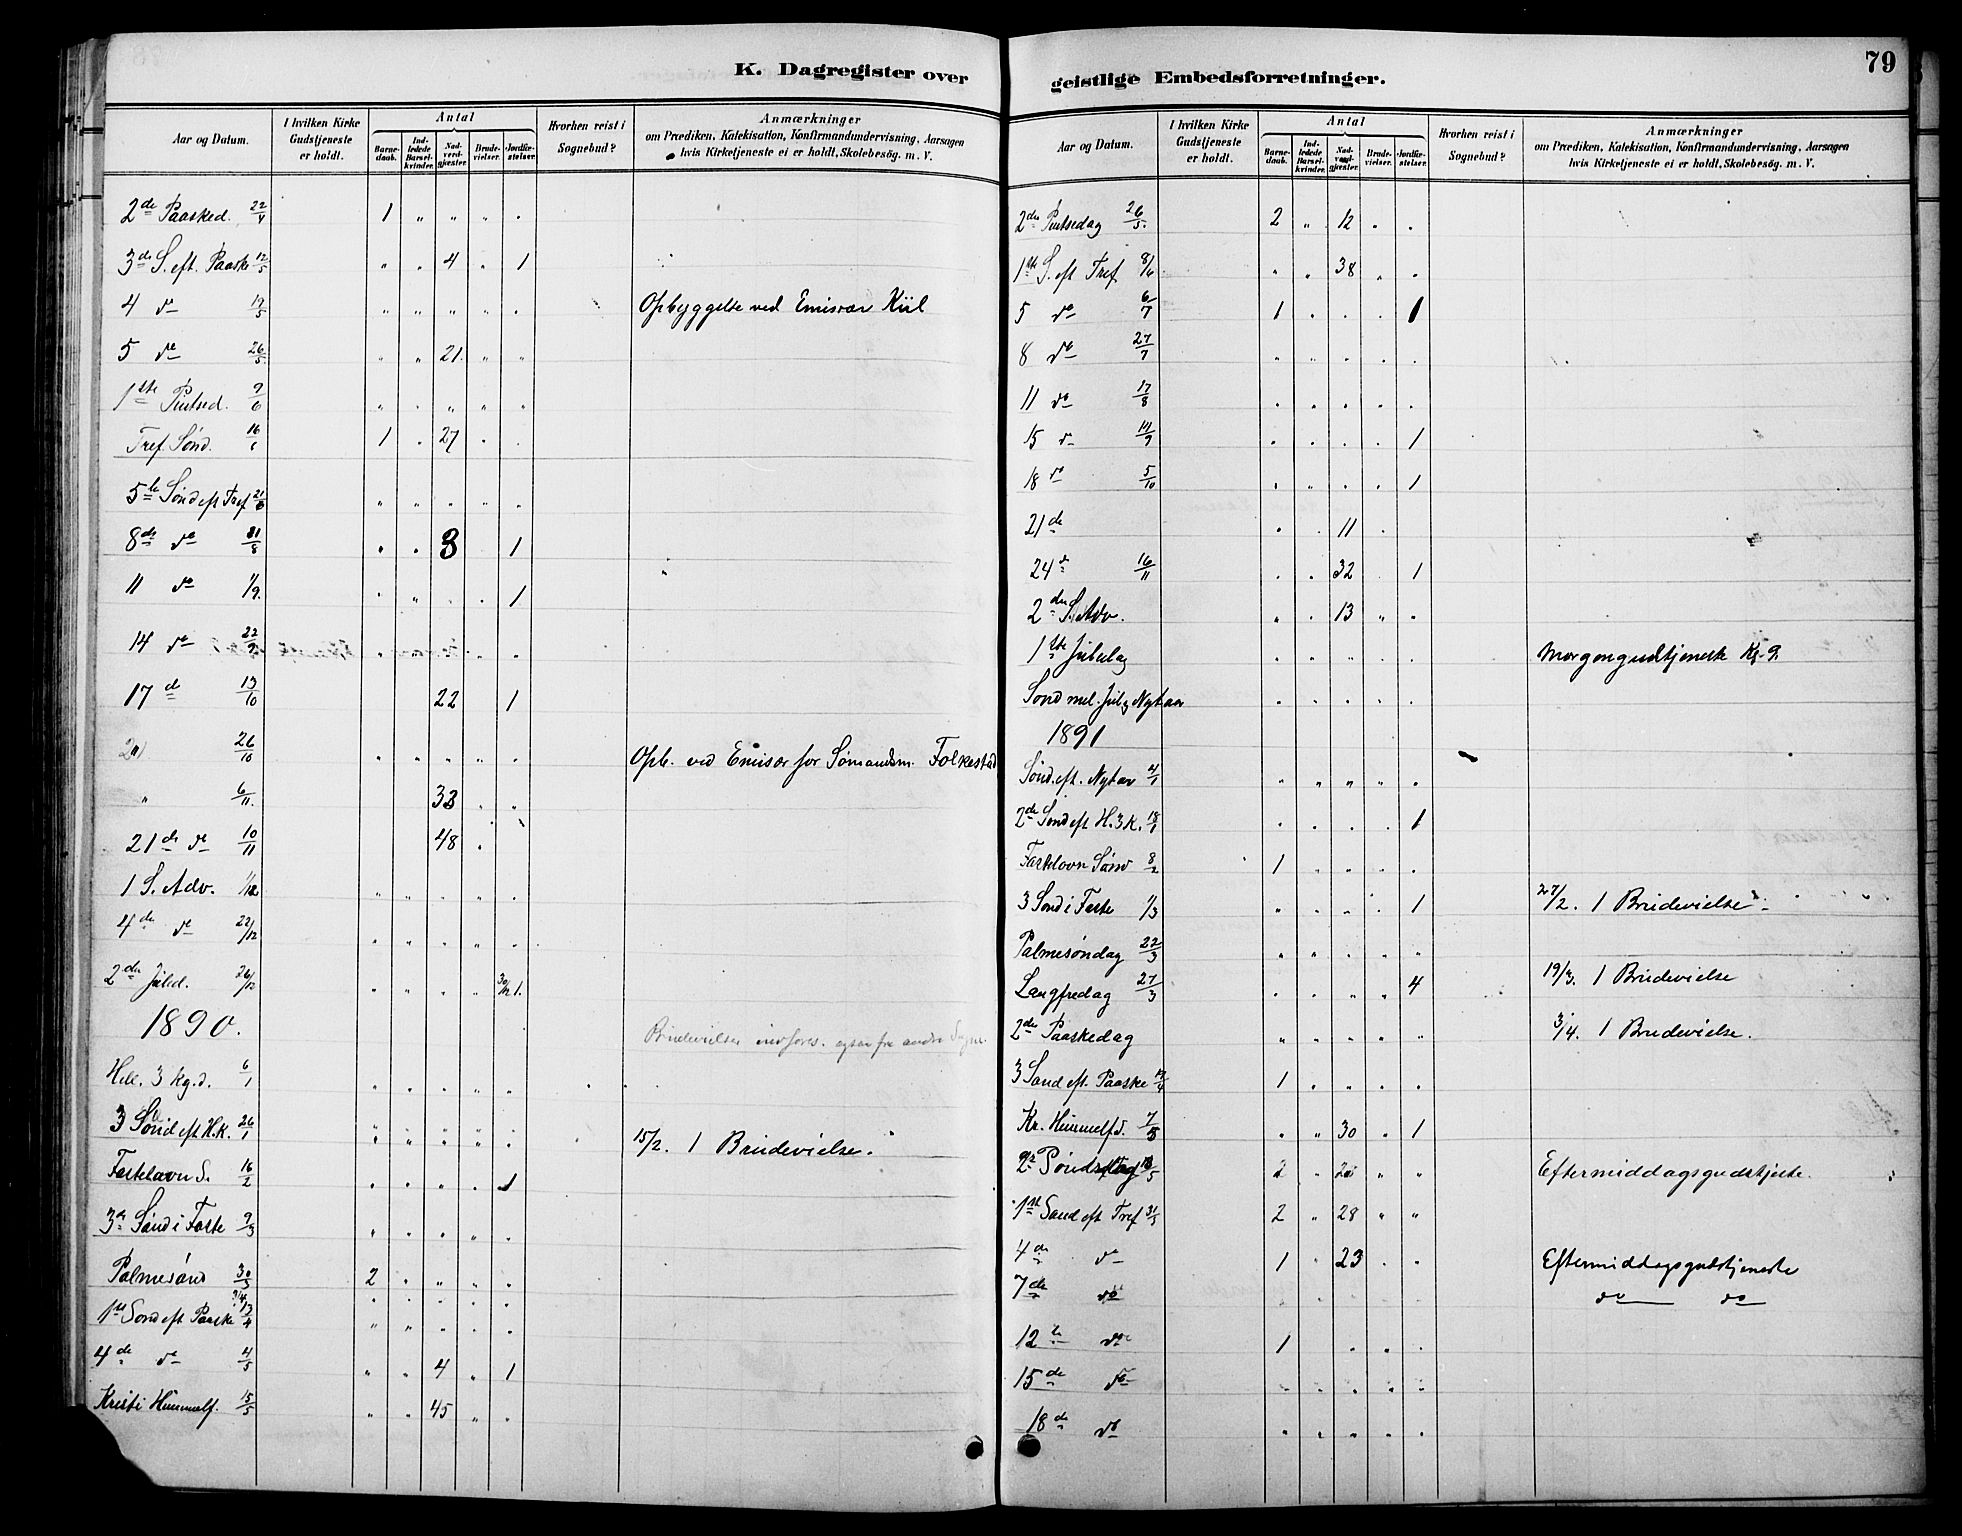 79
K. Dagregister over
geistlige Embedsforretninger.
Aar og Datum. | I hvilken Kirke Gudstjeneste er holdt. | Antal | Barnedaab. | Indledede Barselkvinder. | Nadverdgjæster. | Brudevielser. | Jordfæstelser. | Hvorhen reist i Sognebud? | Anmærkninger om Prædiken, Katekisation, Konfirmandundervisning, Aarsagen hvis Kirketjeneste ei er holdt, Skolebesøg. m. V.
2de Paasked. 22/4 1 " " " "
3de S. eft. Paaske 12/5 " " 4 " 1
4 do 19/5 " " " " " Opbyggelse ved Emisær Kiil
5 do 26/5 " " 21 " "
1ste Pintsed. 9/6 " " " " "
Tref. Sønd. 16/6 1 " 27 " "
5te Sønd eft Tref " " " " "
8de do " " 8 1
11 do 1/9 " " " " 1
14 do 22/9 " " " " "
17de 13/10 22 1
26/10 " " " " " Opb. ved Emisær for Sømandsm. Folkestad
" 6/11 33 " "
21de do 10/11 48 "
1 S. Adv. 1/12 " " " " "
4de do 22/12 " " " " "
2den Juled. 26/12 " " " " 30/12 1.
1890.
Brudevielser
Hell. 3 Kg. d. 6/1 " " " " "
3 Sønd eft H.K. 26/1 " " " " " 15/2. 1 Brudevielse.
Fastelavn S. 16/2 " " " " 1
3de Sønd i Faste 9/3 " " " " "
Palmesønd 30/3 2 " " " "
1ste Sønd eft Paaske 13/4 " " " " "
4de do 4/5 " " 4 " 1
Kristi Himmelf. 15/5 " " 45 " "
Aar og Datum. | I hvilken Kirke Gudstjeneste er holdt. | Antal | Barnedaab. | Indledede Barselkvinder. | Nadverdgjæster. | Brudevielser. | Jordfæstelser. | Hvorhen reist i Sognebud? | Anmærkninger om Prædiken, Katekisation, Konfirmandundervisning, Aarsagen hvis Kirketjeneste ei er holdt, Skolebesøg. m. V.
2den Pintsedag 26/5 2 " 12 " "
1ste S. eft Tref 8/6 " " 38 " "
5 do 6/7 1 " " " 1
8 do 27/7 " " " " "
11 do 17/8 " " " " "
15 do 14/9 " " " " 1
18 do 5/10 " " " " 1
21de " " 11 "
24de 16/11 " " 32 " 1
2den S. Adv. " " 13 " "
1ste Juledag " " " " " Morgengudtjeneste Kl. 9
Sønd mel. Jul og Nytaar " " " " "
1891
Sønd. eft. Nytaar 4/1 " " " " "
2den Sønd eft H. 3 K. 18/1 " " " " 1
Fastelavn Sønd 8/2 1 " " " "
3 Sønd i Faste 1/3 " " " " 1 27/2. 1 Brudevielse
Palmesøndag 22/3 " " " " "
Langfredag 27/3 " " " " 4 19/3. 1 Brudevielse
2den Paaskedag " " " " " 3/4. 1 Brudevielse.
3 Sønd eft. Paaske 19/4 1 " " " "
Kr. Himmelfd. 7/5 " " 30 " 1
2 " " " Eftermiddagsgudstjeste.
1ste Sønd eft Tref 31/5 2 " 28 " "
4de do 1 " 23 " " Eftermiddagsgudstjeneste
7de do " " " " " do do
12te do 1 " " "
15de do " " " " "
18de do " " " " "